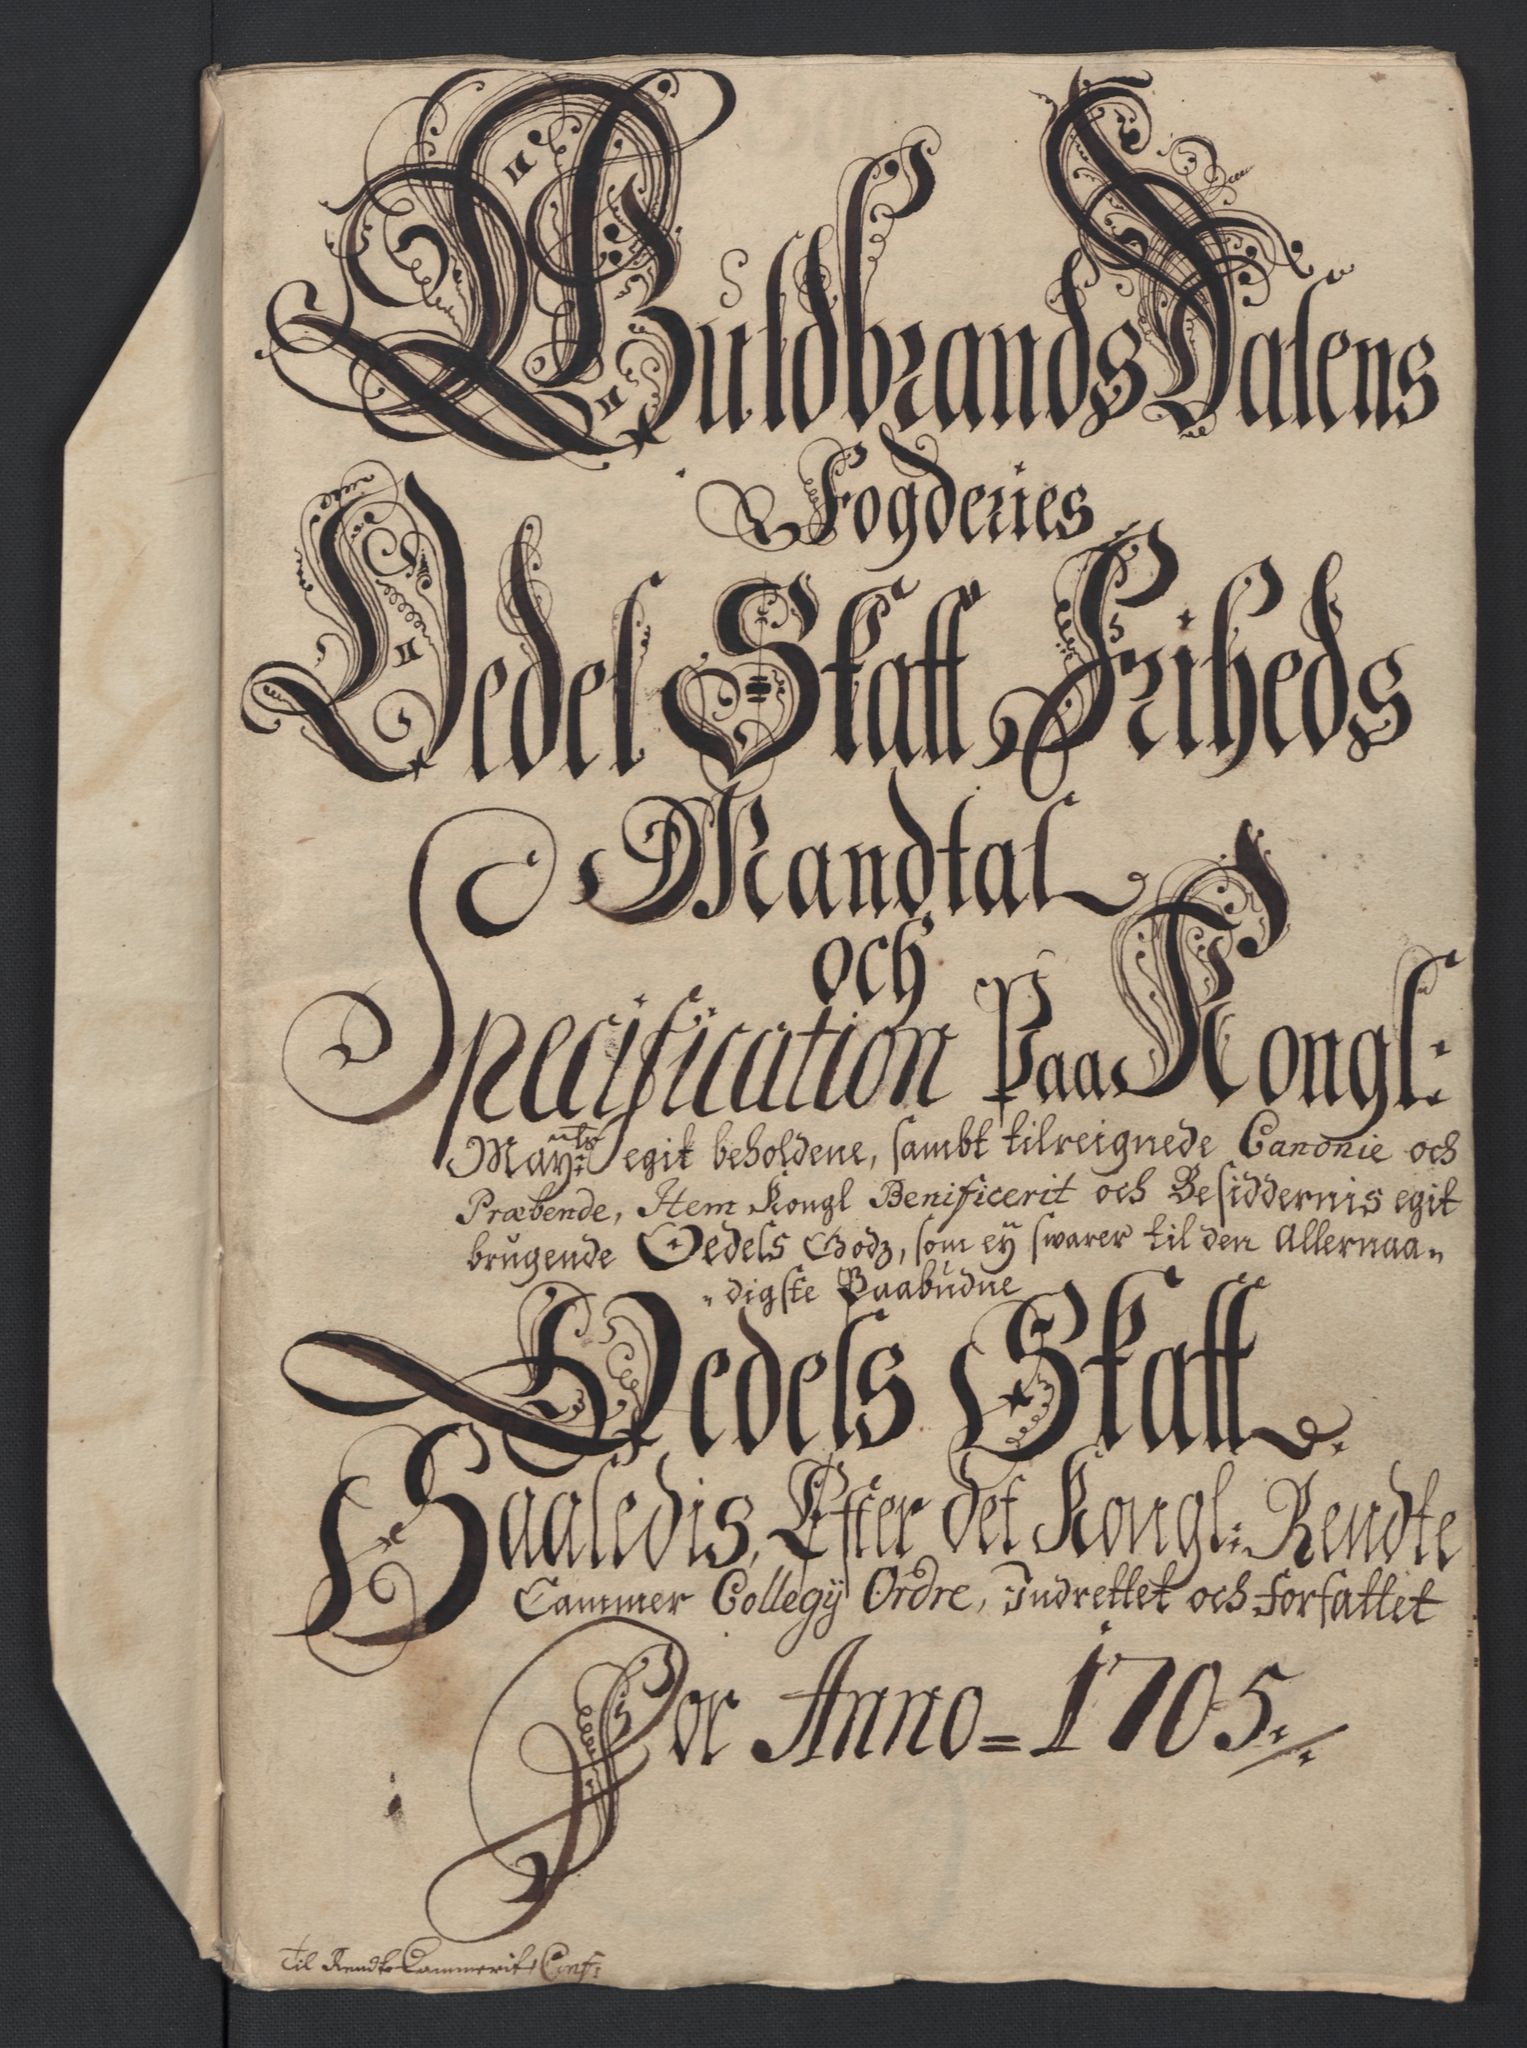 Guldbrands Dalens
Fogderies
Oedel Skatt Friheds
Mandtal
och
Specification Paa Kongl:
May:ts egit beholdene, sambt tilreignede Canonie och
Præbende, Item Kongl Benificerit och Besiddernis egit
brugende Oedels Godz, som eÿ swarer til den Allernaa„
„digste Paabudne
Oedels Skatt
Saaledis, Efter det Kongl: Rendte
Cammer Collegÿ Ordre, Indrettet och forfattet
For Anno = 1705
Til Rendte Cammerit